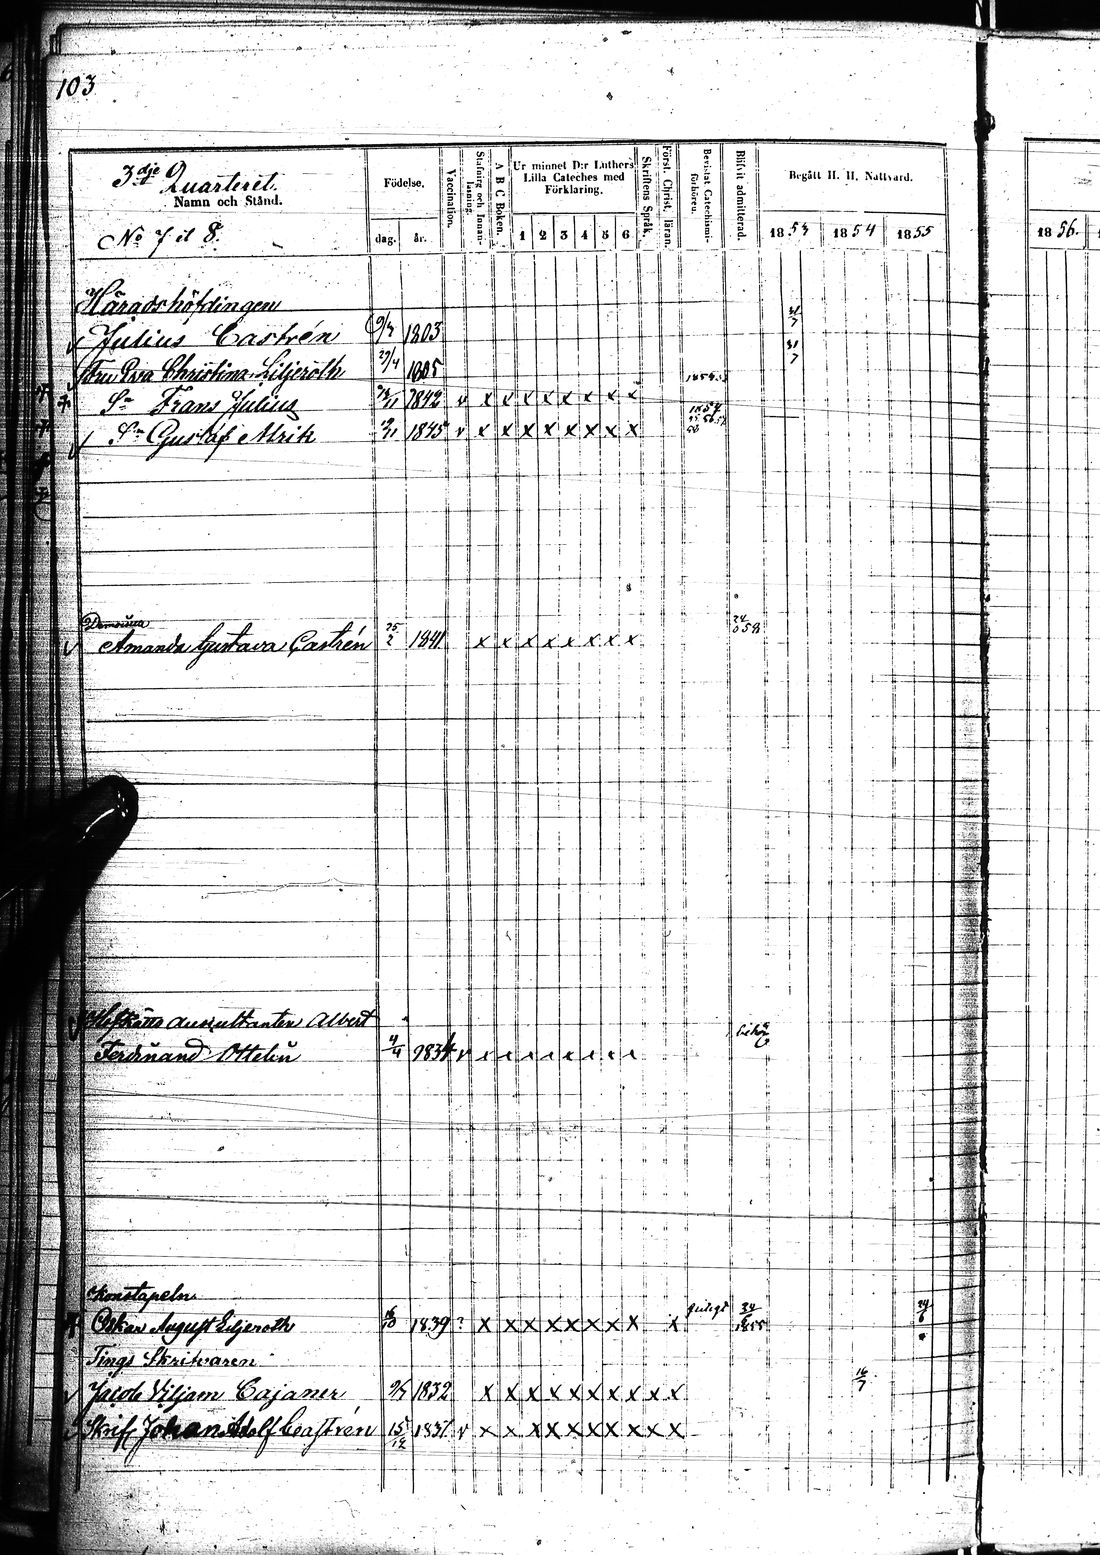 103
3dje Quarteret.
Namn och Stånd.
No 7 et 8.
Födelse.
dag.
år.
Vaccination.
Stafning och Innanläsning.
A B C Boken.
Ur minnet D:r Luthers
Lilla Cateches med
Förklaring.
1 2 3 4 5 6
Skriftens Språk.
Först. Christ. läran.
Bevistat Catechismiförhören.
Blifvit admitterad.
Begått H. H. Nattvard.
1853
1854
1855
1856.
Häradshöfdingen
Julius Castrén 1803 31/7
Fru Christina Liljeroth 29/4 1805 31/7
Sn Frans Julius 1842 v x x x x x x x x
Sn Gustaf Alrik 1845 v x x x x x x x x 1854
Demoisua
Amanda Gustava Castrén 25/2 1841 x x x x x x x x 24/ 58
Hofrätts auscultanten Albert
Ferdinand Ottelin 1834 v x x x x x x x x
Konstapeln
Oskar August Liljeroth 1839 ? x x x x x x x x x 1855 24/6
Tings Skrifvaren
Jacob Viljam Cajaner 1832 x x x x x x x x x x 16/7
Skrif. Johan Adolf Castrén 15/12 1837 v x x x x x x x x x x